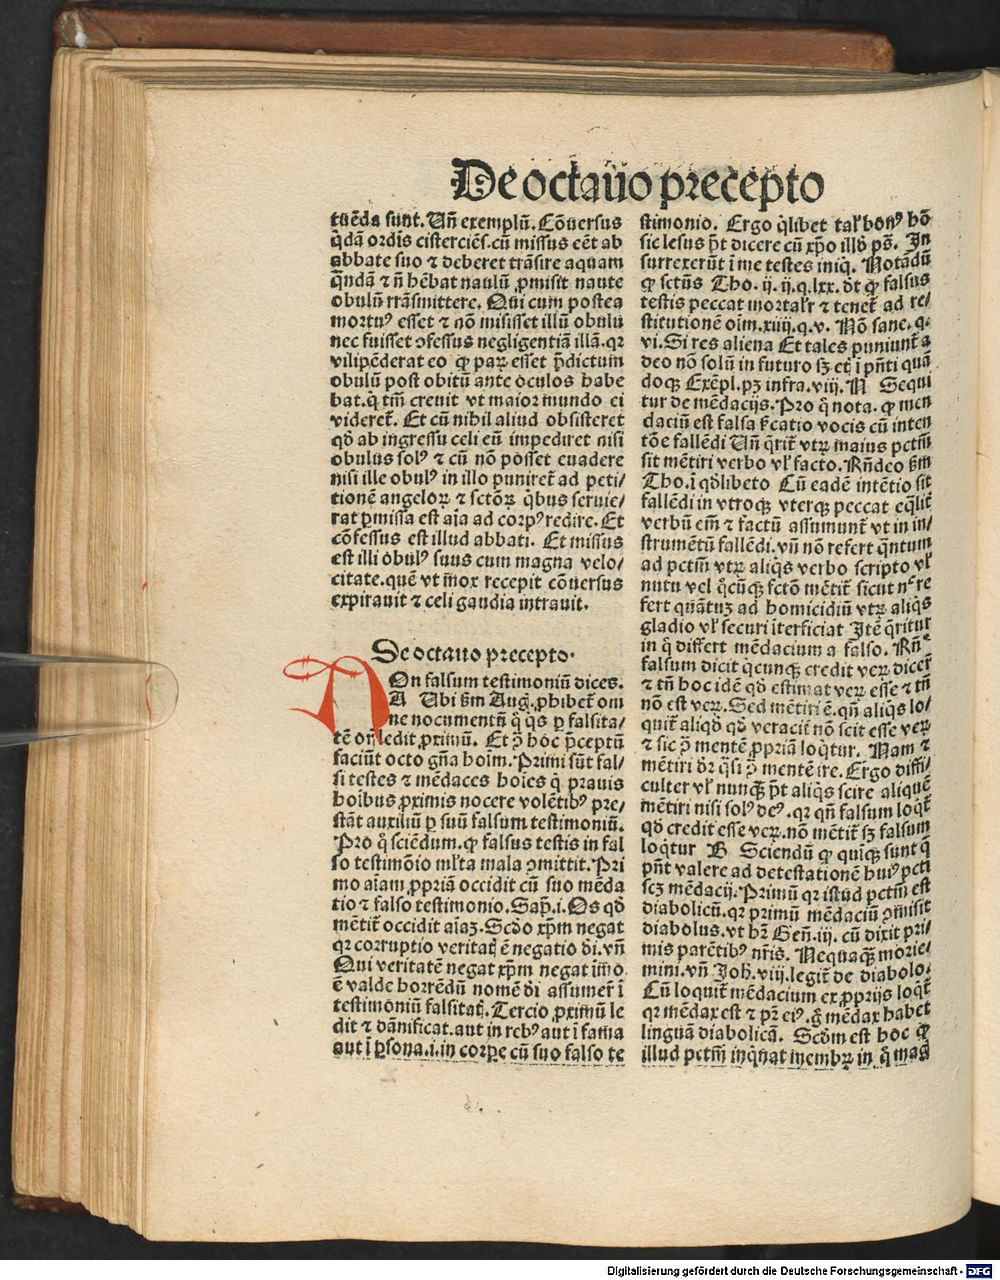 De octauo precepto
tuēda sunt. Vñ exemplū. Cōuersus
q̄dā ordīs cisterciēs. cū missus eēt ab
abbate suo ⁊ deberet trāsire aquam
q̄ndā ⁊ ñ hēbat naulū ꝓmisit naute
obulū trāsmittere. Qui cum postea
mortuꝰ esset ⁊ nō misisset illū obulū
nec fuisset ꝯfessus negligentiā illā. qꝛ
vilipēderat eo ꝙ paꝝ esset p̄dictum
obulū post obitū ante oculos habe
bat. q̇ tm̄ creuit vt maior mundo ei
videret̄. Et cū nihil aliud obsisteret
qđ ab ingressu celi eū impediret nisi
obulus solꝰ ⁊ cū nō posset euadere
nisi ille obulꝰ in illo puniret̄ ad peti⸗
tionē angeloꝝ ⁊ sctōꝝ q̇bus seruie⸗
rat ꝑmissa est aīa ad corpꝰ redire. Et
cōfessus est illud abbati. Et missus
est illi obulꝰ suus cum magna velo⸗
citate. quē vt mox recepit cōuersus
expirauit ⁊ celi gaudia intrauit.
De octauo precepto.
NOn falsum testimoniū dices.
A Vbi ẜm Aug. ꝓhibet̄ om
ne nocumentū q̇ q̇s ꝑ falsita⸗
tē offendit ꝓximū. Et ꝯ̄ hoc p̄ceptū
faciūt octo gn̄a hoīm. Primi sūt fal⸗
si testes ⁊ mēdaces hoīes q̇ prauis
hoībus ꝓximis nocere volētibꝰ pre⸗
stāt auxiliū ꝑ suū falsum testimoniū.
Pro q̊ sciēdum. ꝙ falsus testis in fal
so testimōio ml̄ta mala ꝯmittit. Pri
mo aīam ꝓpriā occidit cū suo mēda
tio ⁊ falso testimonio. Sap̄. i. Os qđ
mētit̄ occidit aīaꝫ. Scđo xp̄m negat
qꝛ corruptio veritatꝭ ē negatio dī. vñ
Qui veritatē negat xp̄m negat īmo
ē valde horrēdū nomē dī assumer̄ ī
testimoniū falsitatꝭ. Tercio ꝓximū le
dit ⁊ dānificat. aut in rebꝰ aut ī fama
aut ī ꝑsona. i. in corpe cū suo falso te
stimonio. Ergo q̇libet tal̕ bonꝰ hō
sic Iesus p̄t dicere cū xp̄o illđ ps̄. In
surrexerūt ī me testes iniq̇. Notādū
ꝙ sctūs Tho. ij. ij. q. lxx. dt̄ ꝙ falsus
testis peccat mortal̕r ⁊ tenet̄ ad re⸗
stitutionē oīm. xiiij. q. v. Nō sane. q.
vi. Si res aliena Et tales puniunt̄ a
deo nō solū in futuro sꝫ etꝭ ī p̄nti quā
doqꝫ Exēpl. pꝫ infra. viij. N Sequi
tur de mēdacijs. Pro q̊ nota. ꝙ men
daciū est falsa vocis cū inten
tōe fallēdi Vñ q̄rit̄ vtꝝ maius pctm̄
sit mētiri verbo vl̕ facto. Rñdeo ẜm
Tho. ī q̊dlibeto Cū eadē intētio sit
fallēdi in vtroqꝫ vterqꝫ peccat eq̄lit̄
verbū em̄ ⁊ factū assumunt̄ vt in in⸗
strumētū fallēdi. vñ nō refert q̄ntum
ad pctm̄ vtꝝ aliq̇s verbo scripto vl̕
nutu vel q̊cūqꝫ fctō mētit̄ sicut nō re
fert quātuꝫ ad homicidiū vtꝝ aliq̇s
gladio vl̕ securi īterficiat Itē q̄ritur
in q̊ differt mēdacium a falso. Rñ.
falsum dicit q̇cunqꝫ credit veꝝ dicer̄
⁊ tñ hoc idē qđ estimat veꝝ esse ⁊ tñ
nō est veꝝ. Sed mētiri ē. qñ aliq̇s lo⸗
quit̄ aliqđ qđ veracit̄ nō scit esse veꝝ
⁊ sic ꝯ̄ mentē ꝓpriā loq̇tur. Nam ⁊
mētiri dr̄ q̄si ꝯ̄ mentē ire. Ergo diffi⸗
culter vl̕ nunqꝫ̄ p̄t aliq̇s scire aliquē
mētiri nisi solꝰ deꝰ. qꝛ qñ falsum loq̇t̄
qđ credit esse veꝝ. nō mētit̄ sꝫ falsum
loq̇tur B Sciendū ꝙ quīqꝫ sunt q̄
pn̄t valere ad detestationē huiꝰ pcti
scꝫ mēdacij. Primū qꝛ istud pctm̄ est
diabolicū. qꝛ primū mēdaciū ꝯmisit
diabolus. vt hr̄ Geñ. iij. cū dixit pri⸗
mis parētibꝰ nr̄is. Nequaqꝫ̄ morie⸗
mini. vñ Joh. viij. legit̄ de diabolo.
Cū loquit̄ mēdacium ex ꝓprijs loq̇t̄
qꝛ mēdax est ⁊ pr̄ eiꝰ. g̊ mēdax habet
linguā diabolicā. Scđm est hoc ꝙ
illud pctm̄ inq̇nat membꝝ in q̊ mag
Digitalisierung gefördert durch die Deutsche Forschungsgemeinschaft - DFG